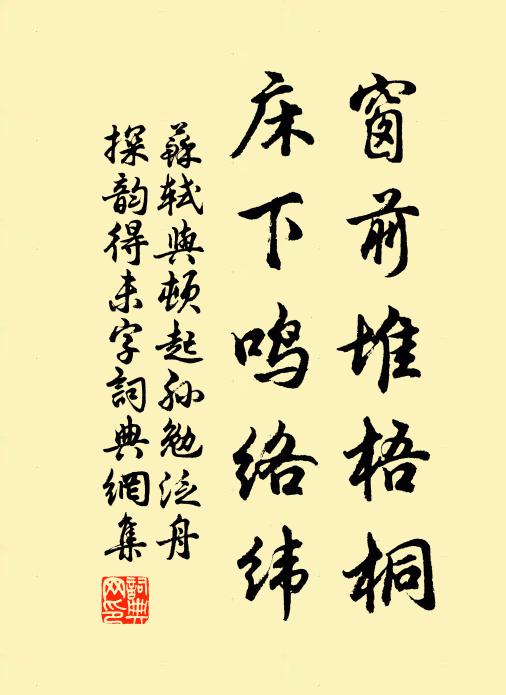 窗前堆梧桐
床下鸣络纬
蘇軾與頓起孙勉泛舟
探韵得未字詞典網集
詞典网印